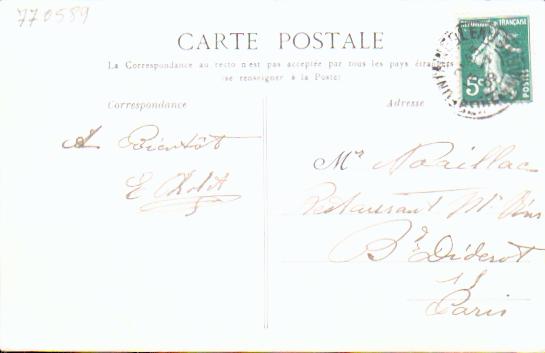 770589
CARTE POSTALE
La Correspondance au recto n'est pas acceptée par tous les pays étrangers
(se renseigner à la Poste)
Correspondance
Adresse
FRANÇAISE
5c
POSTES
A Bientôt
Mr Noaillac
Restaurant
Bd Diderot
Paris